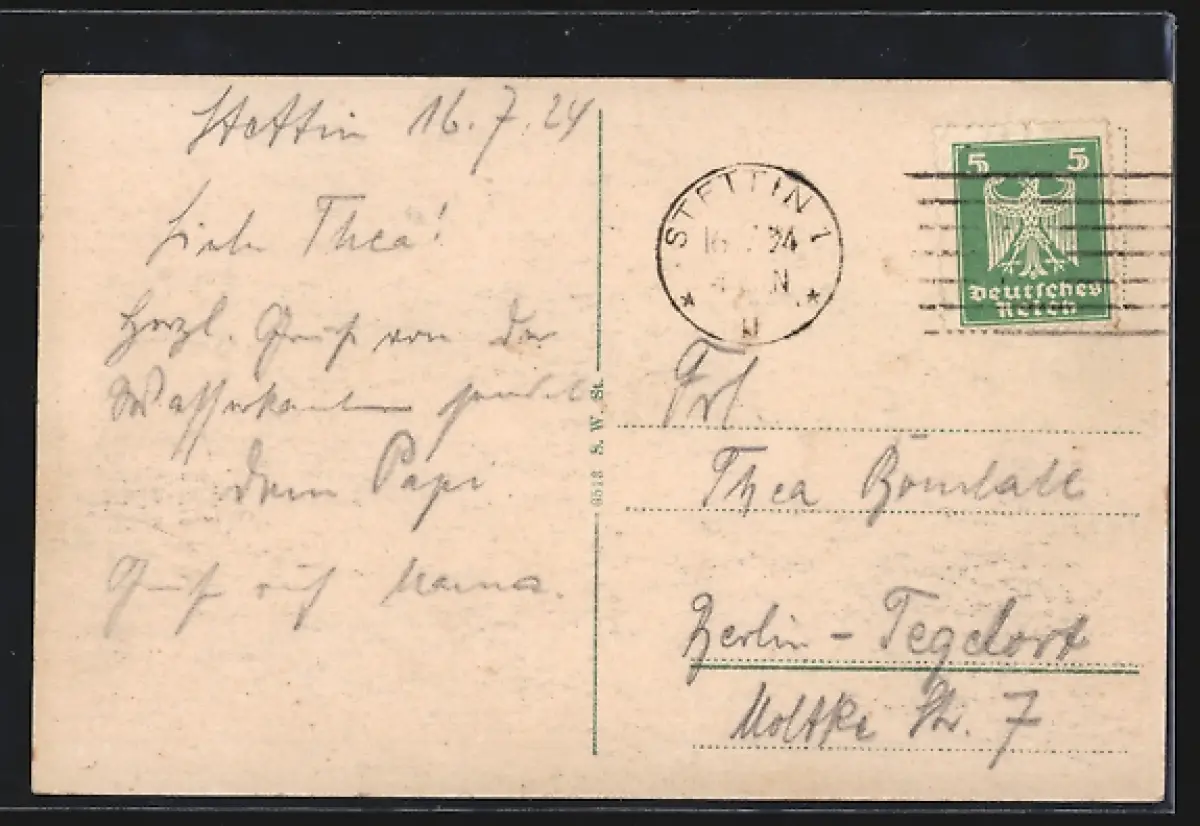 Stettin 16.7.24
Liebe Thea!
Herzl. Gruß von der
Wasserkante sendet
Dein Papi
Gruß auch Mama.
6513 S. W. St.
STETTIN 1
16. 24
N
5 5
Deutsches
Reich
Frl.
Thea
Berlin - Tegelort
Moltke Str. 7